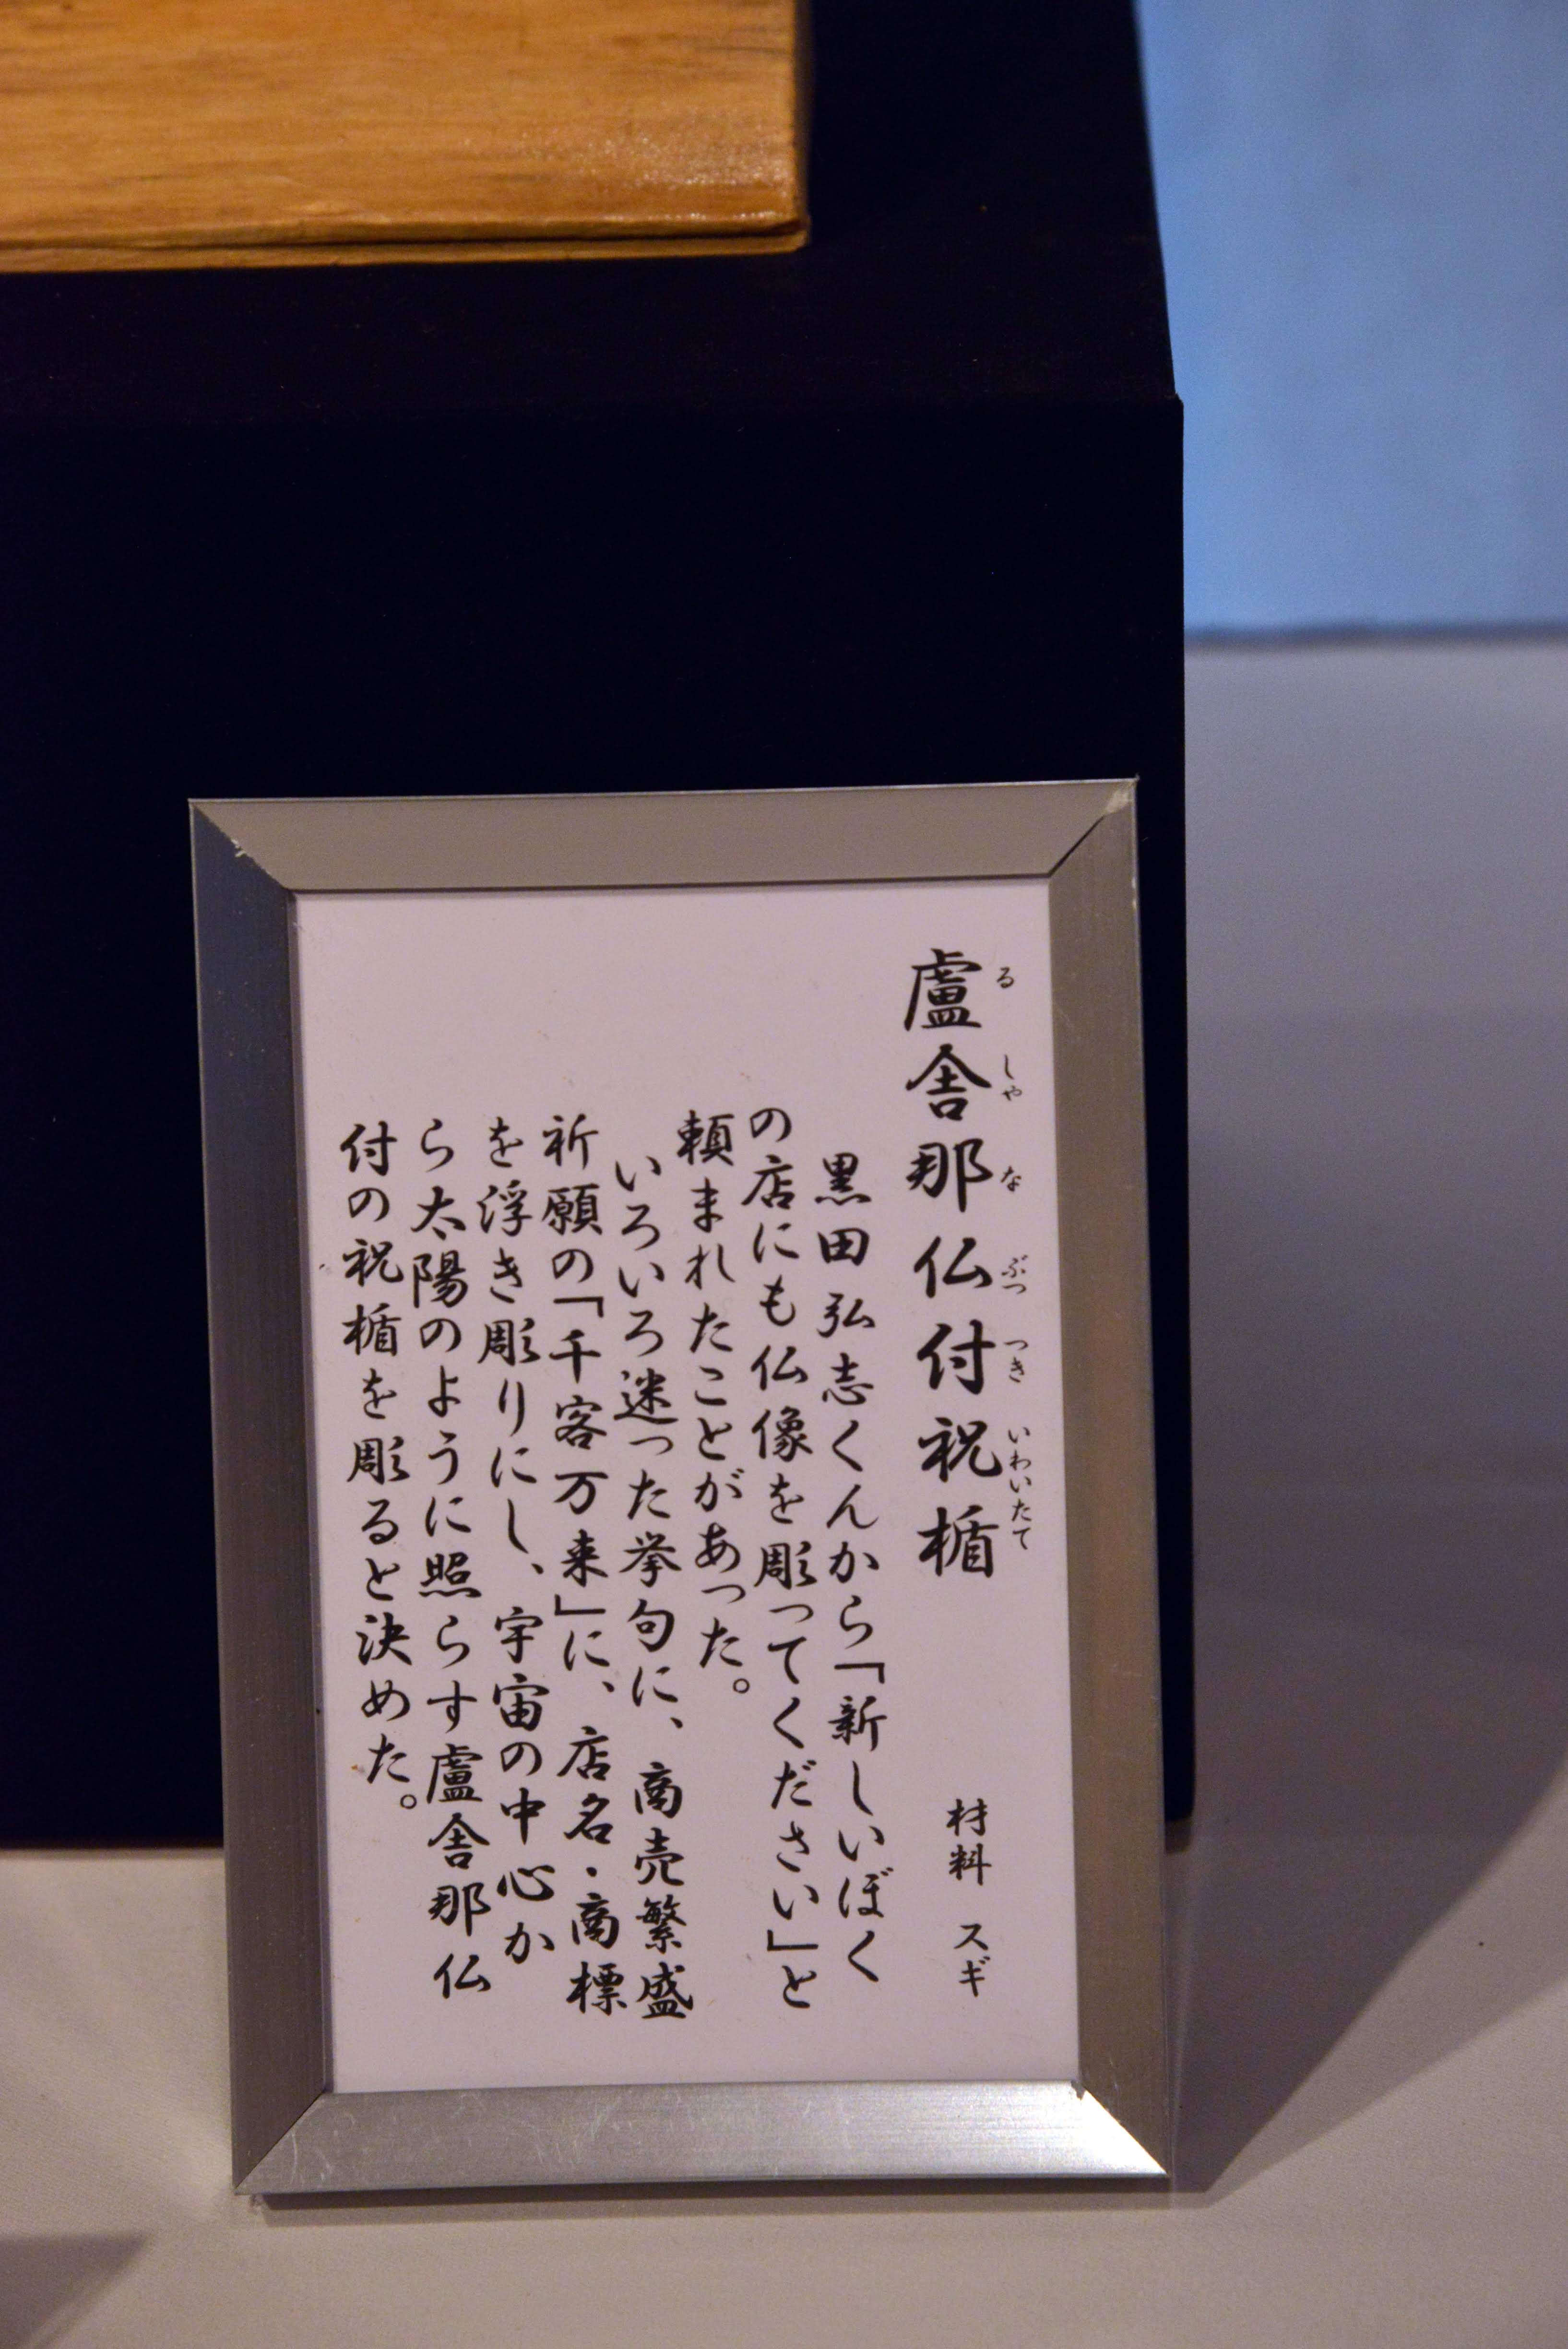 盧舎那仏付祝楯
る しゃ な ぶつ つき いわいたて
材料 スギ
黒田弘志くんから「新しいぼく
の店にも仏像を彫ってください」と
頼まれたことがあった。
いろいろ迷った挙句に、商売繁盛
祈願の「千客万来」に、店名・商標
を浮き彫りにし、宇宙の中心か
ら太陽のように照らす盧舎那仏
付の祝楯を彫ると決めた。